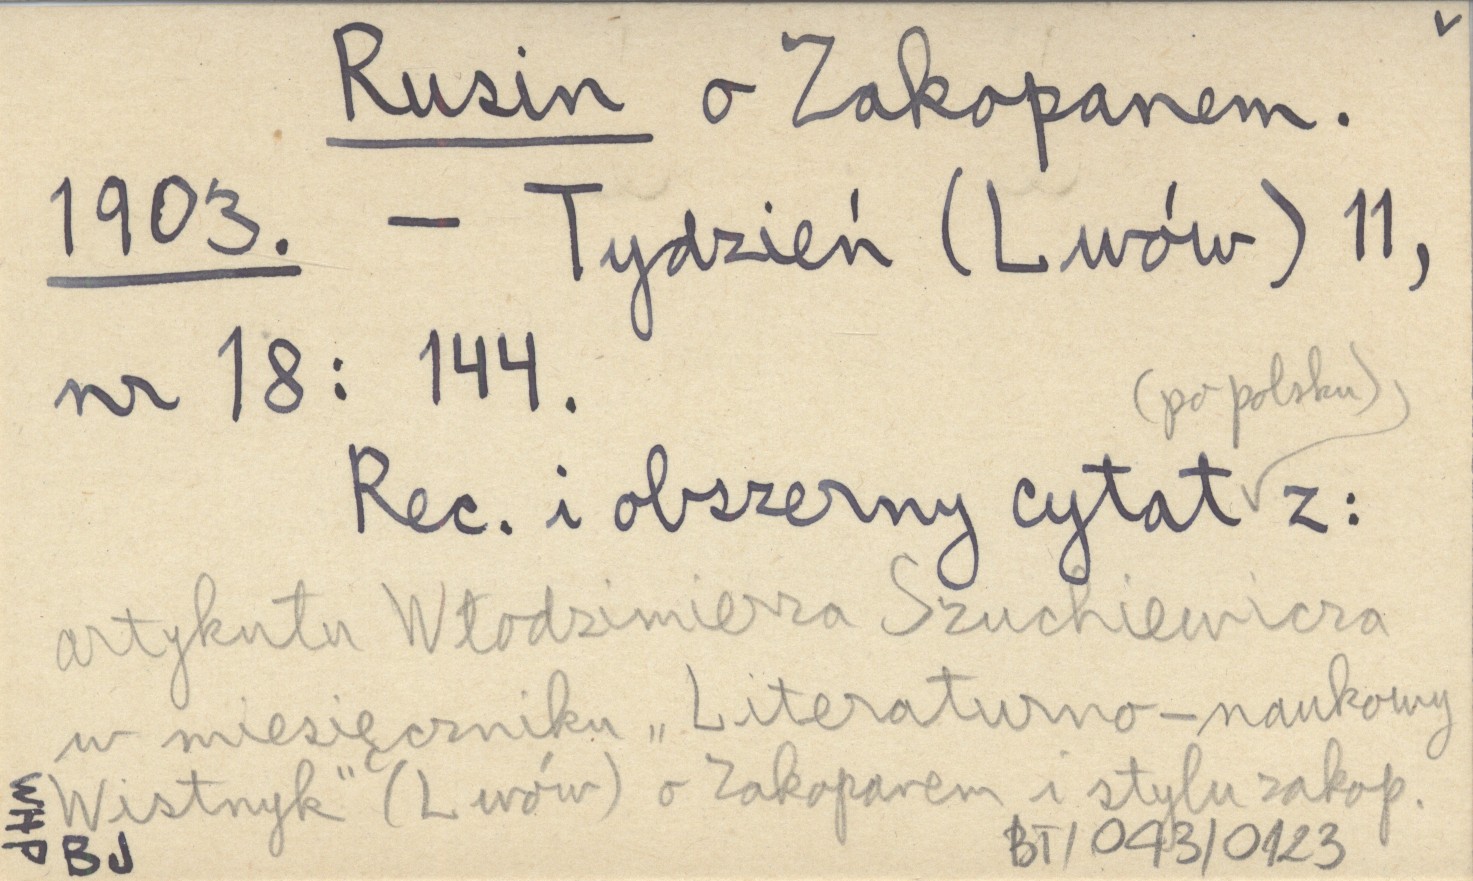 Rusin o Zakopanem.
1903. – Tydzień (Lwów) 11,
nr 18: 144.
(po polsku)
Rec. i obszerny cytat z:
artykułu Włodzimierza Szuchiewicza
w miesięczniku „Literaturno-naukowy
Wistnyk" (Lwów) o Zakopanem i stylu zakop.
WHP
BJ
BT/043/0123